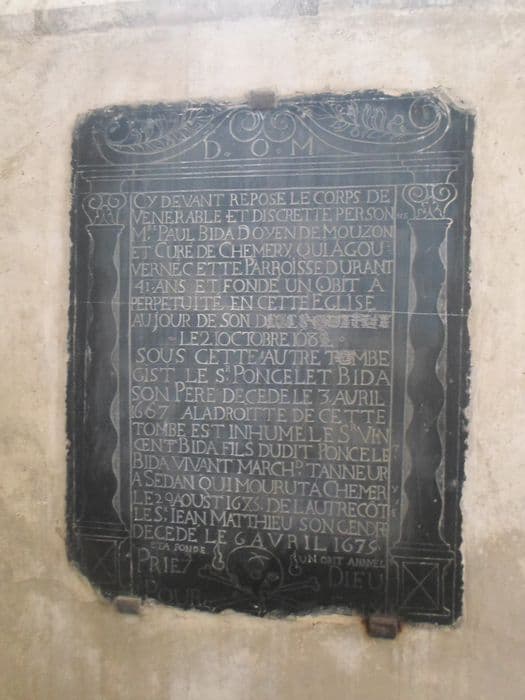 D. O. M
CY DEVANT REPOSE LE CORPS DE
VENERABLE ET DISCRETTE PERSONNE
MRE PAUL BIDA DOYEN DE MOUZON
ET CURE DE CHEMERY, QUI A GOU
VERNE CETTE PARROISSE DURANT
41 ANS ET FONDE UN OBIT A
PERPETUITE EN CETTE EGLISE
AU JOUR DE SON
LE 2 OCTOBRE
SOUS CETTE AUTRE TOMBE
GIST LE SR PONCELET BIDA
SON PERE DECEDE LE 3 AVRIL
1667 A LA DROITTE DE CETTE
TOMBE EST INHUME LE SR VIN
CENT BIDA FILS DUDIT PONCELET
BIDA VIVANT MARCHD TANNEUR
A SEDAN QUI MOURUT A CHEMERY
LE 29 AOUST 1673. DE LAUTRE COTE
LE SR IEAN MATTHIEU SON GENDRE
DECEDE LE 6 AVRIL 1675
ET A FONDE UN OBIT ANNUEL
PRIEZ DIEU
POUR